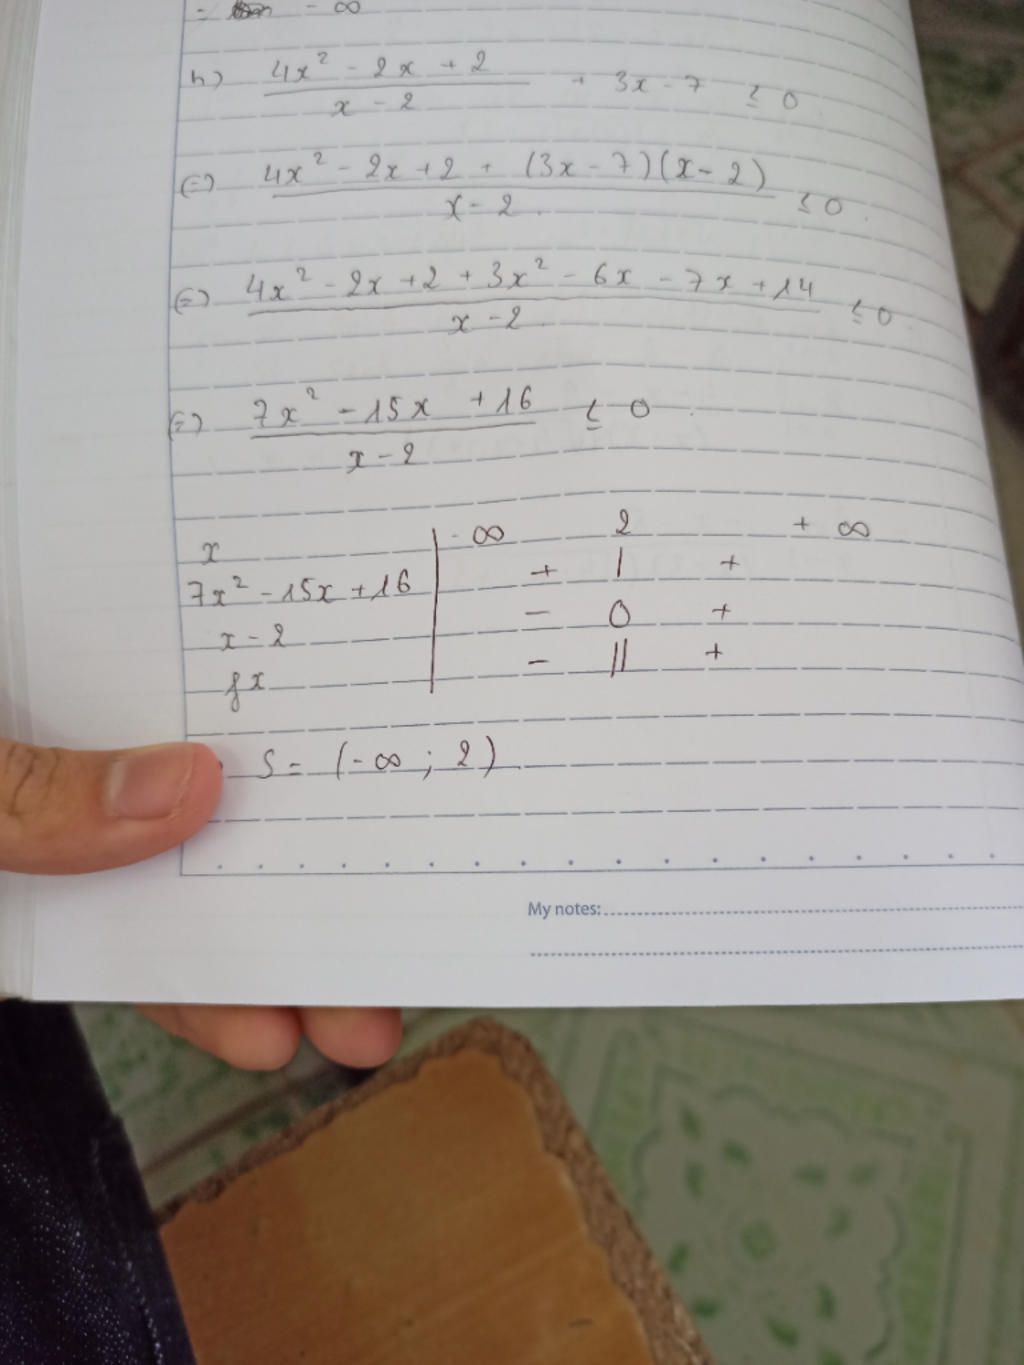 = - ∞
h) (4x² - 2x + 2)/(x - 2) + 3x - 7 ≤ 0
(=) (4x² - 2x + 2 + (3x - 7)(x - 2))/(x - 2) ≤ 0.
(=) (4x² - 2x + 2 + 3x² - 6x - 7x + 14)/(x - 2) ≤ 0
(=) (7x² - 15x + 16)/(x - 2) ≤ 0
x | -∞ 2 + ∞
7x² - 15x + 16 | + | +
x - 2 | - 0 +
fx | - || +
S = (-∞ ; 2)
My notes: